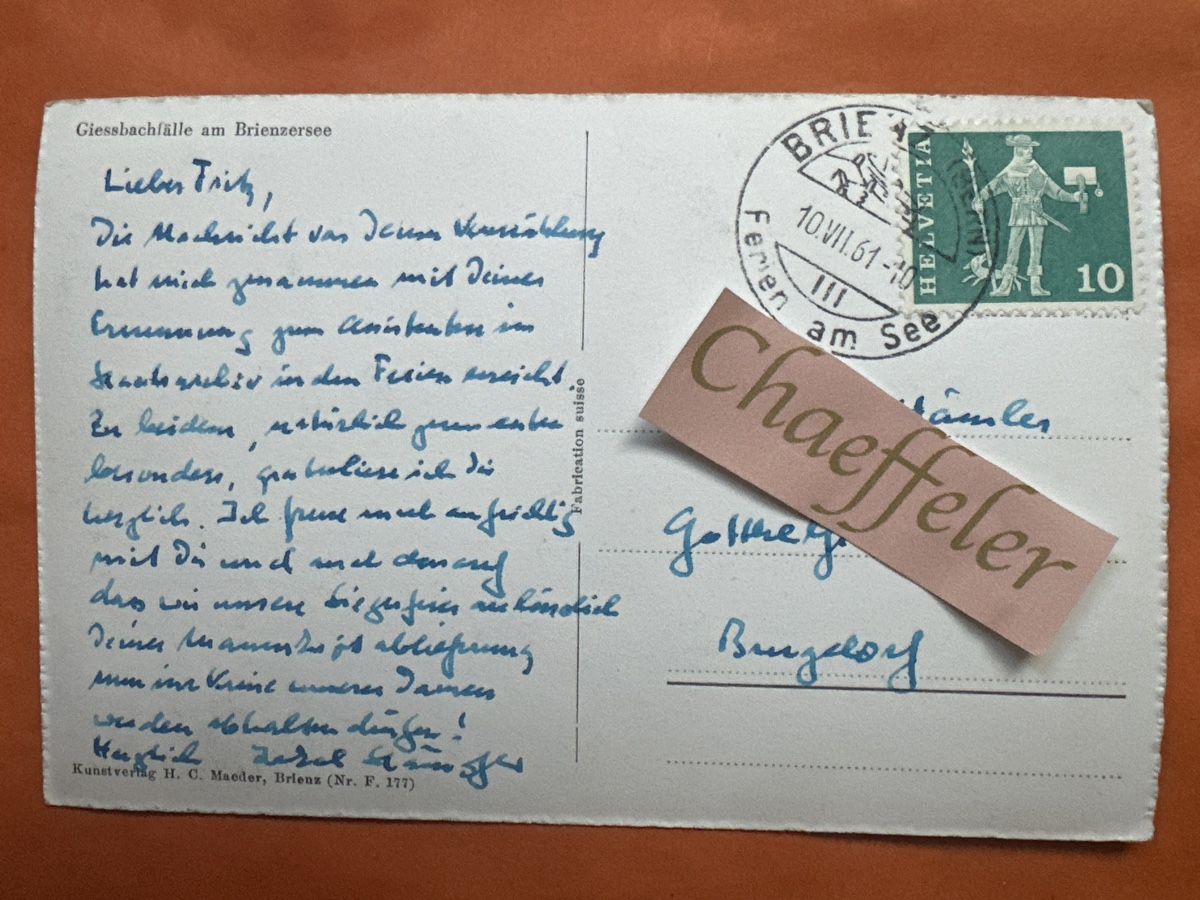 Giessbachfälle am Brienzersee
Lieber Fritz,
Die Nachricht von Deiner Vermählung
hat mich zusammen mit Deiner
Ernennung zum Assistenten im
Staatsarchiv in den Ferien erreicht.
Zu beidem, natürlich zum ersten
besonders, gratuliere ich Dir
herzlich. Ich freue mich aufrichtig
mit Dir und auch darauf
dass wir unsere Siegesfeier anlässlich
Deiner Manuskriptablieferung
nun im Kreise unserer Damen
werden abhalten dürfen!
Herzlich
Kunstverlag H. C. Maeder, Brienz (Nr. F. 177)
Fabrication suisse
BRIENZ (BERN)
10.VII.61-10
III
Ferien am See
HELVETIA
10
Chaeffeler
Burgdorf